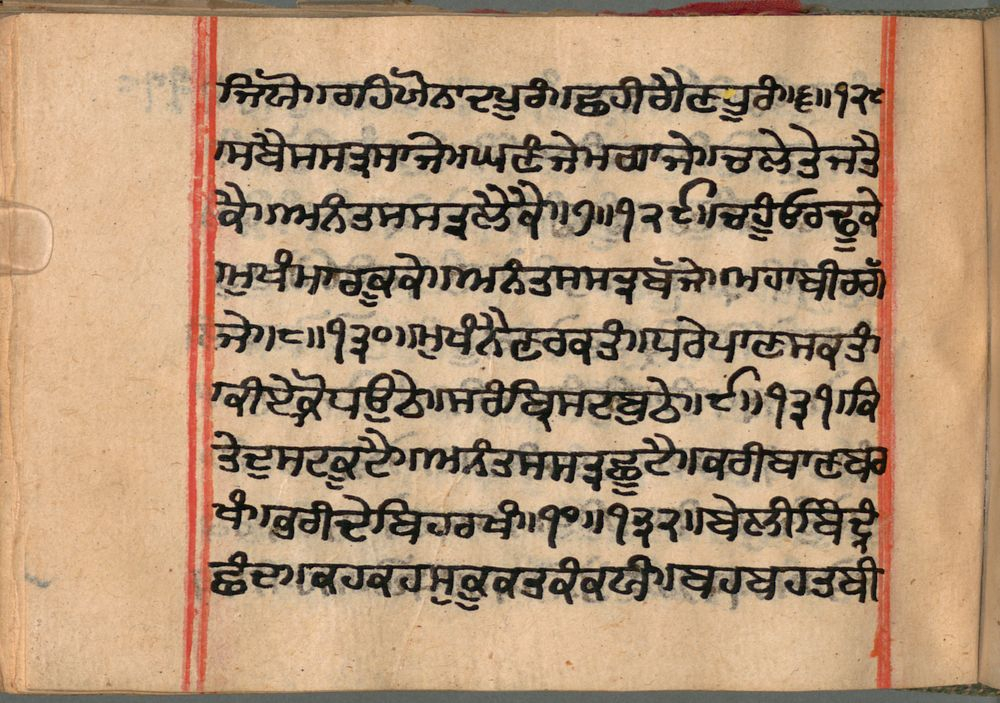 ਜਿਖੋ॥ਰਹਿਯੋਨਾਦਪੂਰੰ॥ਛਹੀਰੈਣਧੂਰੰ॥੬॥੧੨੮
ਸਬੈਸਸਤ੍ਰਸਾਜੇ॥ਘਣੰਜੇਮਗਾਜੇ॥ਚਲੇਤੇਜਤੈ
ਕੈ॥ਅਨੰਤਸਸਤ੍ਰਲੈਕੈ॥੭॥੧੨੯॥ਚਹੂੰਓਰਢੂਕੇ
ਮੁਖੰਮਾਰਕੂਕੇ॥ਅਨੰਤਸਸਤ੍ਰਬੱਜੇ॥ਮਹਾਬੀਰਗੱ
ਜੇ॥੮॥੧੩੦॥ਮੁਖੰਨੈਣਰਕਤੰ॥ਧਰੇਪਾਣਸਕਤੰ
ਕੀਏਕ੍ਰੋਧਉਠੇ॥ਸਰੰਬ੍ਰਿਸਟਬੁਠੇ॥੯॥੧੩੧॥ਕਿ
ਤੇਦੁਸਟਕੂਟੈ॥ਅਨੰਤਸਸਤ੍ਰਛੂਟੈ॥ਕਰੀਬਾਣਬਰ
ਖੰ॥ਕੁਰੀਦੇਬਿਹਰਖੰ॥੧੦॥੧੩੨॥ਬੇਲੀਬਿੰਦ੍ਰੰ
ਛੰਦ॥ਕਹਕਹਸੁਕੂਕਤਕੰਕਯੰ॥ਬਹਬਹਤਬੀ